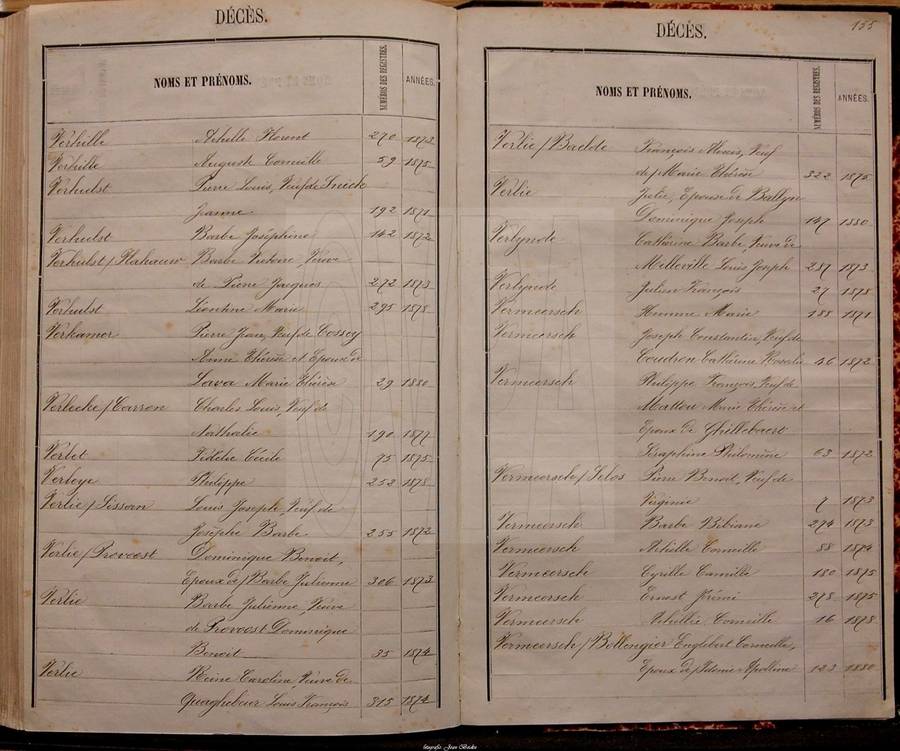 DÉCÈS.
NOMS ET PRÉNOMS.
NUMÉROS DES REGISTRES.
ANNÉES.
Verhille Achille Florent 270 1873
Verhille Auguste Camille 59 1875
Verhulst Pierre Louis, Veuf de
Jeanne 192 1871
Verhulst Barbe Joséphine 142 1872
Verhulst / Barbe Victoire, Veuve
de Pierre Jacques 272 1873
Verhulst Léontine Marie 295 1878
Verkamer Pierre Jean, Veuf de Cossey
Anne Thérèse et Epoux de
Lava Marie Thérèse 29 1880
Verlecke / Carron Charles Louis, Veuf de
Nathalie 190 1877
Verlet Fidélie Cécile 75 1875
Verleye Philippe 252 1878
Verlie / Louis Joseph, Veuf de
Josèphe Barbe 255 1872
Verlie / Provoost Dominique Benoit,
Epoux de / Barbe Julienne 306 1873
Verlie Barbe Julienne, Veuve
de Provoost Dominique
Benoit 35 1874
Verlie Reine Carolina, Veuve de
Quaghebeur Louis François 315 1874
155
DÉCÈS.
NOMS ET PRÉNOMS.
NUMÉROS DES REGISTRES.
ANNÉES.
Verlie / Baelde François Alexis, Veuf
de / Marie Thérèse 322 1875
Verlie Julie, Epouse de
Dominique Joseph 147 1880
Verlynde Cathérine Barbe, Veuve de
Melleville Louis Joseph 287 1873
Verlynde Julien François 27 1878
Vermeersch Marie 188 1871
Vermeersch Joseph Constantin, Veuf de
Coudron Cathérine Rosalie 46 1872
Vermeersch Philippe François, Veuf de
Mattou Marie Thérèse et
Epoux de Ghillebaert
Séraphine Philomène 63 1872
Vermeersch / Selos Pierre Benoit, Veuf de
Virginie 7 1873
Vermeersch Barbe Bibiane 274 1873
Vermeersch Achille Corneille 88 1874
Vermeersch Cyrille Camille 180 1875
Vermeersch Ernest Rémi 278 1875
Vermeersch Achille Corneille 16 1878
Vermeersch / Bollengier Englebert Corneille,
Epoux de / Apolline 123 1880